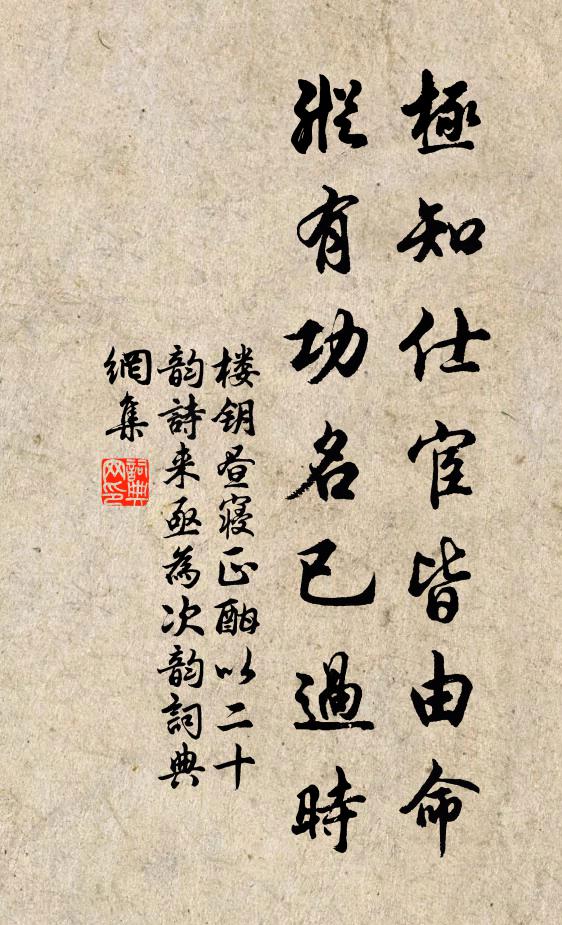 極知仕宦皆由命
縱有功名已過時
楼钥昼寝正酣以二十
韵詩来亟為次韵詞典
網集
詞典
网印